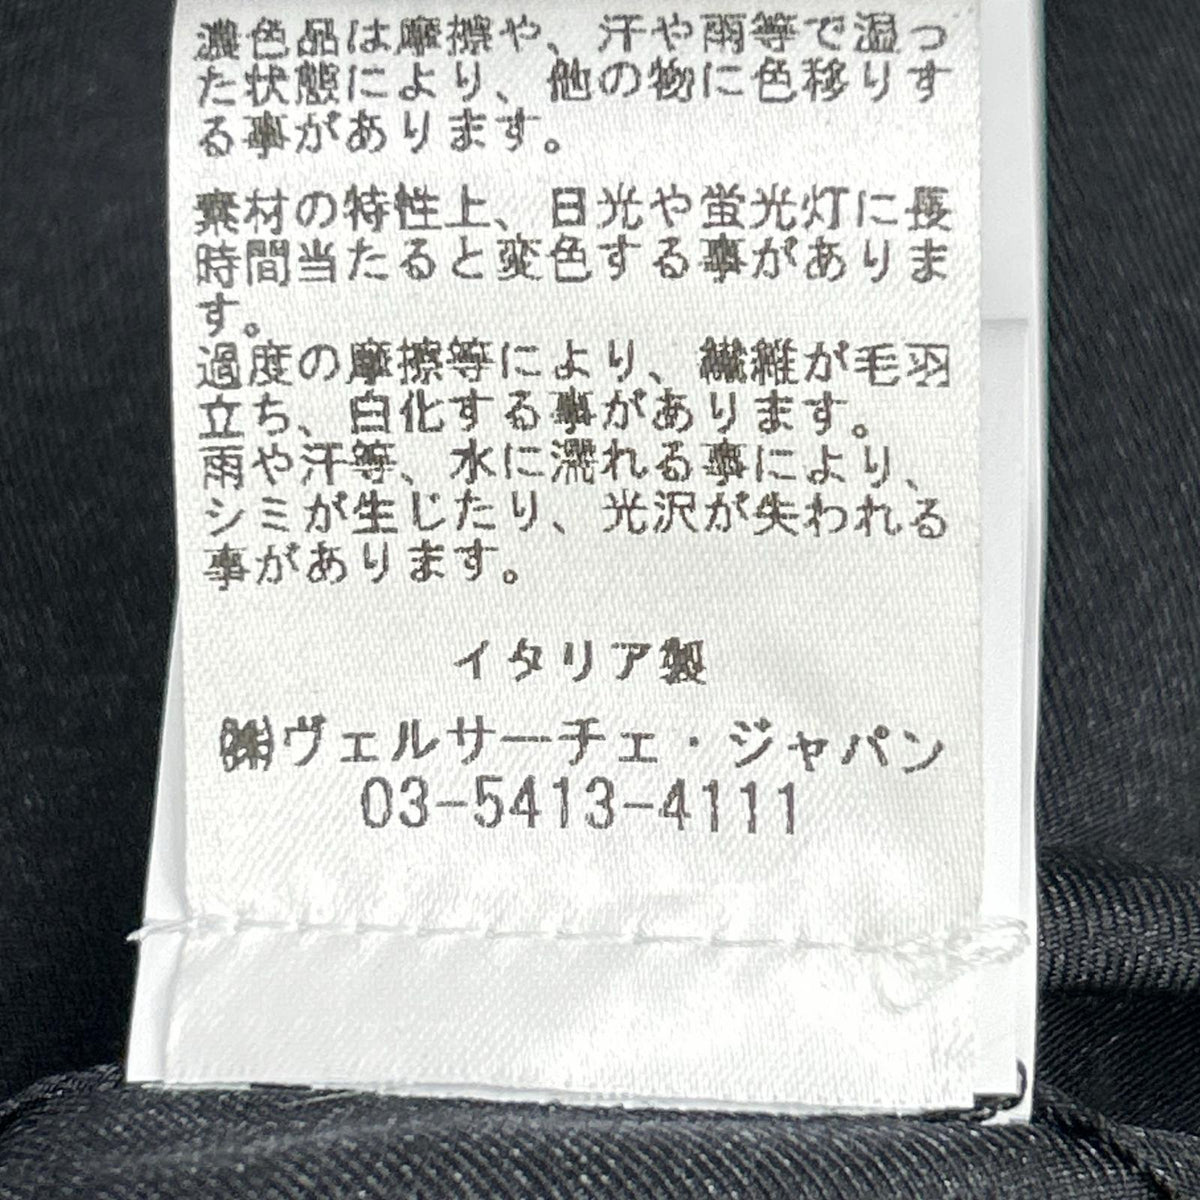 濃色品は摩擦や、汗や雨等で湿っ
た状態により、他の物に色移りす
る事があります。
素材の特性上、日光や蛍光灯に長
時間当たると変色する事がありま
す。
過度の摩擦等により、繊維が毛羽
立ち、白化する事があります。
雨や汗等、水に濡れる事により、
シミが生じたり、光沢が失われる
事があります。
イタリア製
㈱ヴェルサーチェ・ジャパン
03-5413-4111